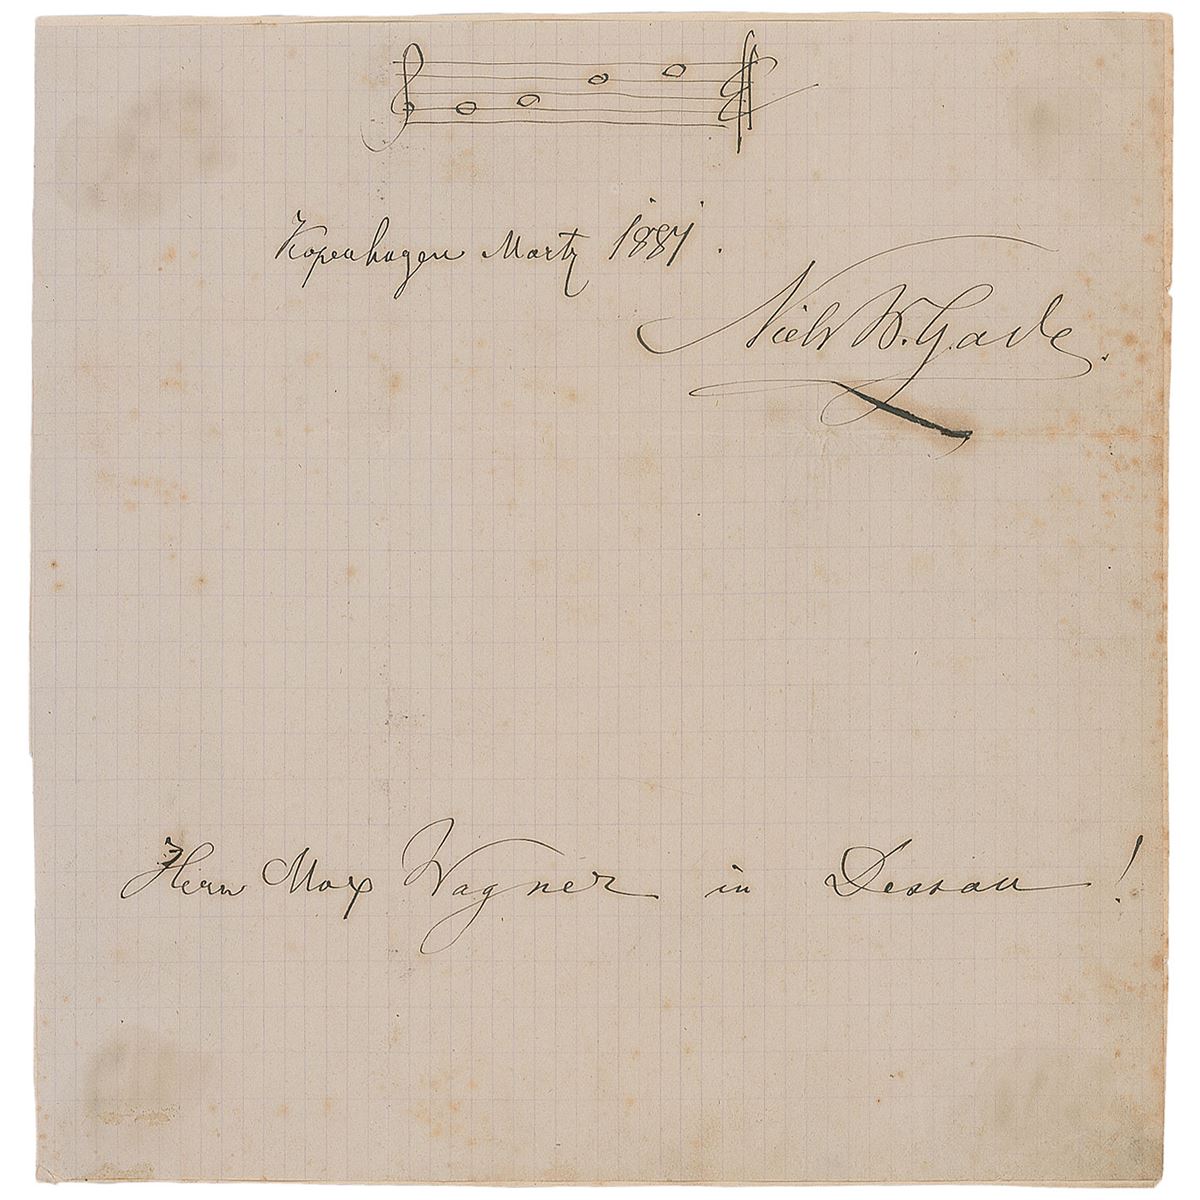 Kopenhagen Martz 1887.
Niels W. Gade.
Herrn Max Wagner in Dessau!